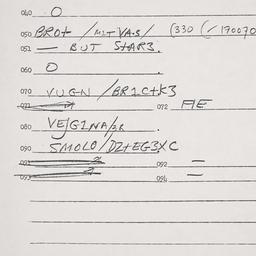 040 O
050 BROT / MIT VAS/ (330 (/170070
051 — BUT STAR3.
060 O
070 VUGN /BR1CTK3
071 072 AE
080 VEJG1NA/2R
090 SMOLO/DZTEG3XC
091 092 —
095 096 —